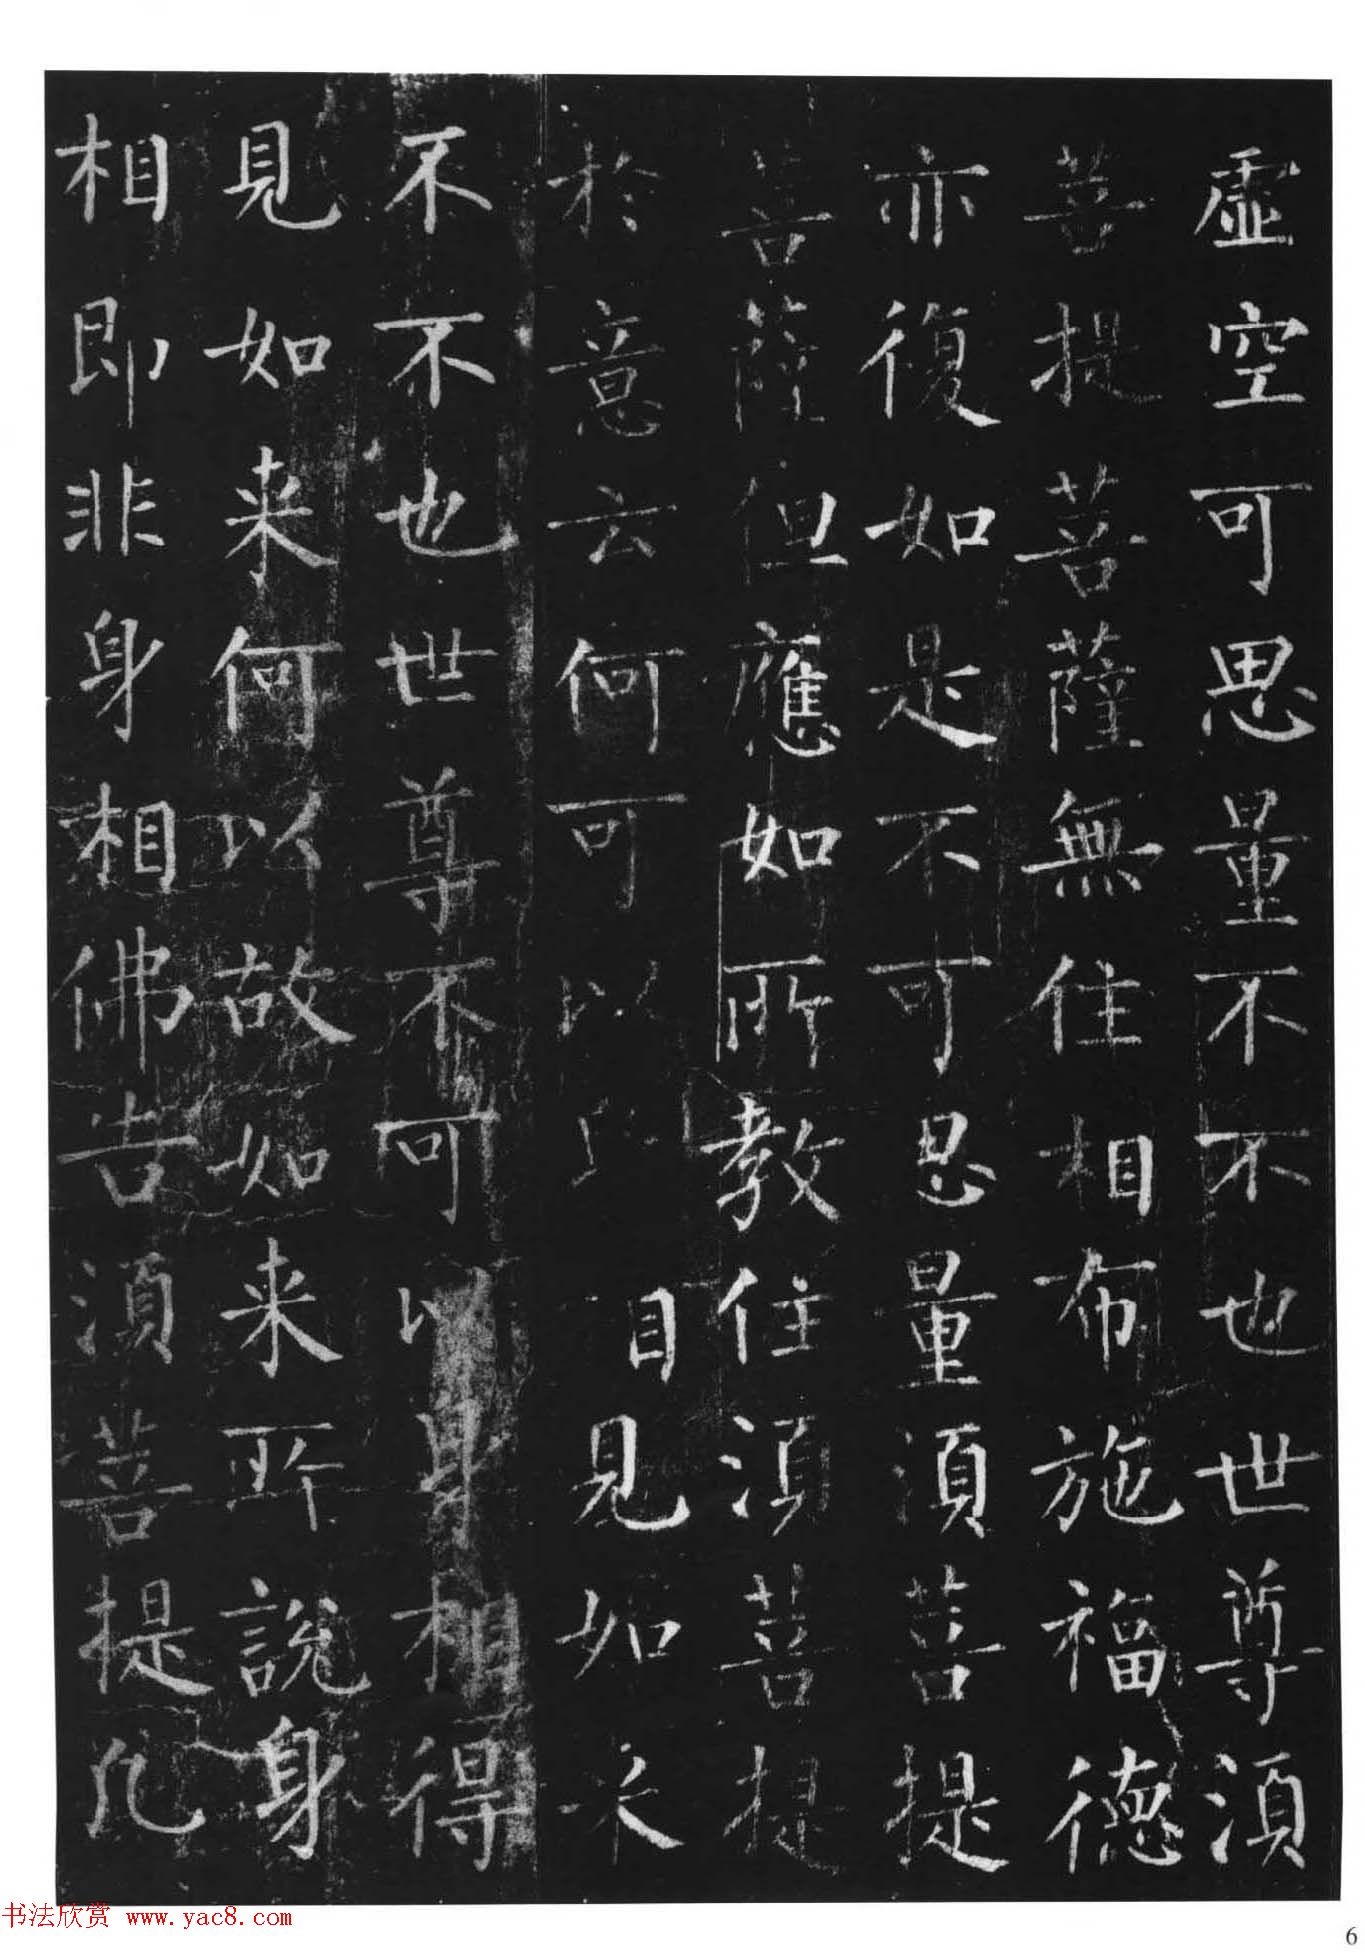 虛空可思量不不也世尊須
菩提菩薩無住相布施福德
亦復如是不可思量須菩提
菩薩但應如所教住須菩提
於意云何可以見如来
不不也世尊不可以身相得
見如来何以故如来所說身
相即非身相佛告須菩提凡
书法欣赏 www.yac8.com
6